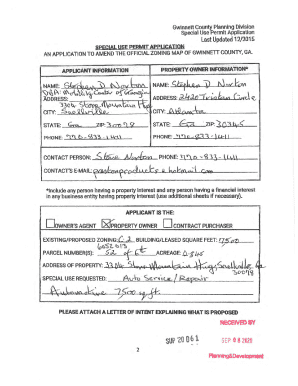 Gwinnett County Planning Division
Special Use Permit Application
Last Updated 12/2015
SPECIAL USE PERMIT APPLICATION
AN APPLICATION TO AMEND THE OFFICIAL ZONING MAP OF GWINNETT COUNTY, GA.
APPLICANT INFORMATION
PROPERTY OWNER INFORMATION*
NAME: Stephen D Norton
NAME: Stephen D Norton
DBA: Mobility Center of Georgia
ADDRESS: 3304 Stone Mountain Hwy
ADDRESS: 2420 Circle
CITY: Snellville
CITY: Atlanta
STATE: Ga ZIP: 30078
STATE: Ga ZIP: 30345
PHONE: 770-833-1411
PHONE: 770-833-1411
CONTACT PERSON: Steve Norton PHONE: 770-833-1411
CONTACT'S E-MAIL: hotmail.com
*Include any person having a property interest and any person having a financial interest
in any business entity having property interest (use additional sheets if necessary).
APPLICANT IS THE:
OWNER'S AGENT PROPERTY OWNER CONTRACT PURCHASER
EXISTING/PROPOSED ZONING: C2 BUILDING/LEASED SQUARE FEET: 7500
PARCEL NUMBER(S): 52 of 6th ACREAGE:
ADDRESS OF PROPERTY: 3304 Stone Mountain Hwy, Snellville Ga
30078
SPECIAL USE REQUESTED: Auto Service/Repair
Automotive 7500 sq. ft.
PLEASE ATTACH A LETTER OF INTENT EXPLAINING WHAT IS PROPOSED
RECEIVED BY
SUP 20 061
SEP 08 2020
2
Planning & Development